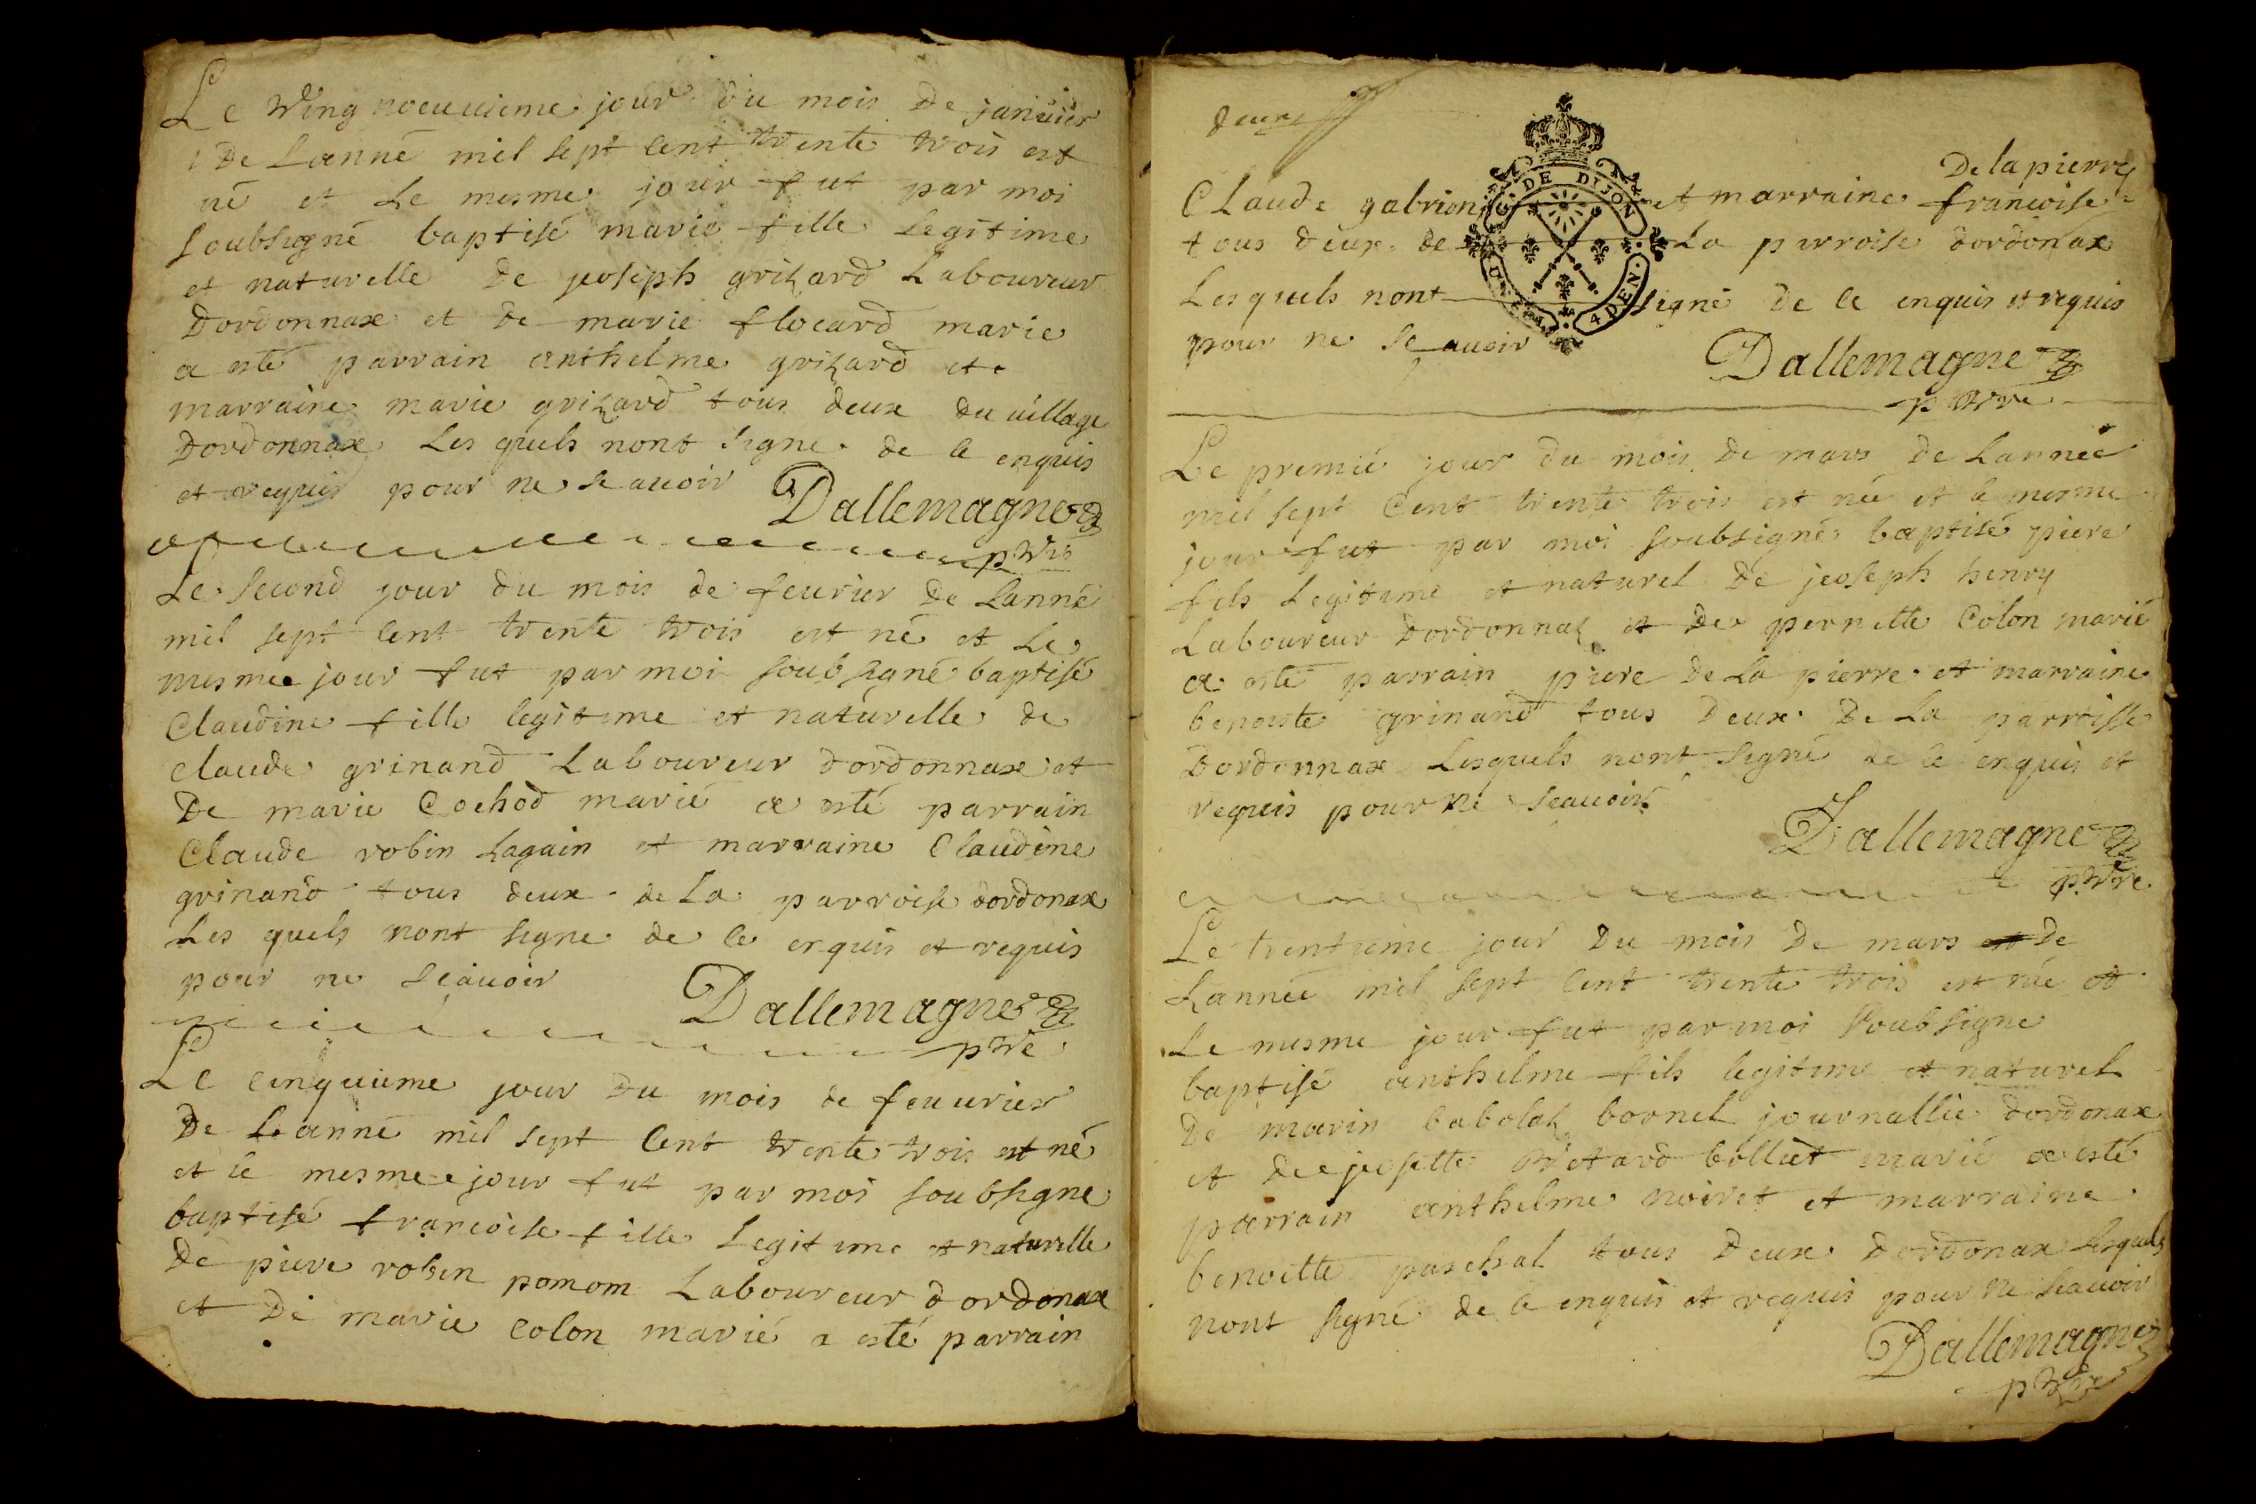 Le Ving noeuuieme jour du mois De januier
De Lanné mil sept Cent trente trois est
né et Le mesme jour fut par moi
soubsigné baptisé marie fille Legitime
et naturelle De jeoseph grizard Laboureur
Dordonnax et de marie flocard marie
a esté parrain anthelme grizard et
marraine marie grizard tous deux du uillage
Dordonnax Les quels nont signe de Ce enquis
et requis pour ne scauoir Dallemagne
ptre
Le second jour du mois de feurier De Lanné
mil sept Cent trente trois est né et Le
mesmee jour fut par moi soubsigné baptisé
Claudine fille legitime et naturelle de
claude grinand Laboureur dordonnax et
De marie Cochod marié a esté parrain
Claude robin Lagain et marraine Claudine
grinand tous deux de La parroise dordonax
Les quels nont signe de Ce enquis et requis
pour ne scauoir Dallemagne
ptre
Le Cinquieme jour Du mois de feuurier
De Leanné mil sept Cent trente trois est né
et le mesmee jour fut par moi soubsigne
baptisé francoise fille Legitime et naturelle
De piere robin pomom Laboureur dordonax
et De marie Colon marié a esté parrain
deux
De la pierre
Claude gabrion et marraine francoise
tous deux de La parroise dordonax
Lesquels nont signé de Ce enquis et requis
pour ne scauoir
G. DE DIJON
4 DEN.
Dallemagne
ptre
Le premié jour du mois De mars De Lannée
mil sept Cent trente trois est née et le mesme
jour fut par moi soubsigné baptisé piere
fils Legitime et naturel De jeoseph henry
Laboureur Dordonnaz et De pernette Colon marié
a esté parrain piere De La pierre et marraine
benoiste grinand tous Deux De La parroisse
Dordonnax Lesquels nont signé de Ce enquis et
requis pour ne scauoir
Dallemagne
ptre
Le trentieme jour Du mois De mars De
Lannée mil sept Cent trente trois est né et
Le mesme jour fut par moi soubsigne
baptisé anthelme fils legitime et naturel
De marin babolaz bornel journallie dordonax
et dee jeosette bolliet marié a esté
parrain anthelme noiret et marraine
benoitte paschal tous Deux Dordonax Lesquels
nont signé de Ce enquis et requis pour ne scauoir
Dallemagne
ptre